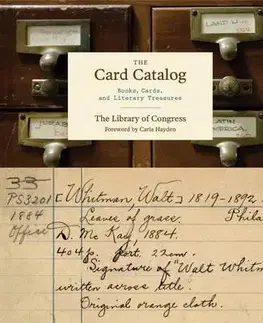 LAND
THE
Card Catalog
Books, Cards,
and Literary Treasures
The Library of Congress
Foreword by Carla Hayden
JURA
LATIN
AMERICA
33
PS3201 [Whitman, Walt] 1819-1892.
1884 Leaves of grass. Phila
Office D. McKay, 1884.
404 p. port. 22cm.
Signature of "Walt Whitm
written across title.
Original orange cloth.